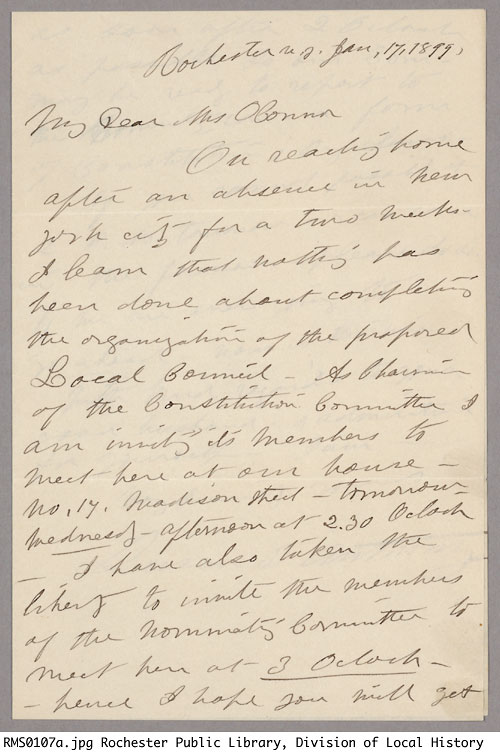 Rochester N.Y. Jan, 17, 1899,
My Dear Mrs O'Connor
On reaching home
after an absence in New
York city for a two weeks -
I learn that nothing has
been done about completing
the organization of the proposed
Local Council - As Chairman
of the Constitution Committee I
am inviting its members to
meet here at our house -
No, 17, Madison Street - tomorrow -
Wednesday - afternoon at 2.30 Oclock
- I have also taken the
liberty to invite the members
of the Nominating Committee to
meet here at 3 Oclock -
- hence I hope you will get
RMS0107a.jpg Rochester Public Library, Division of Local History